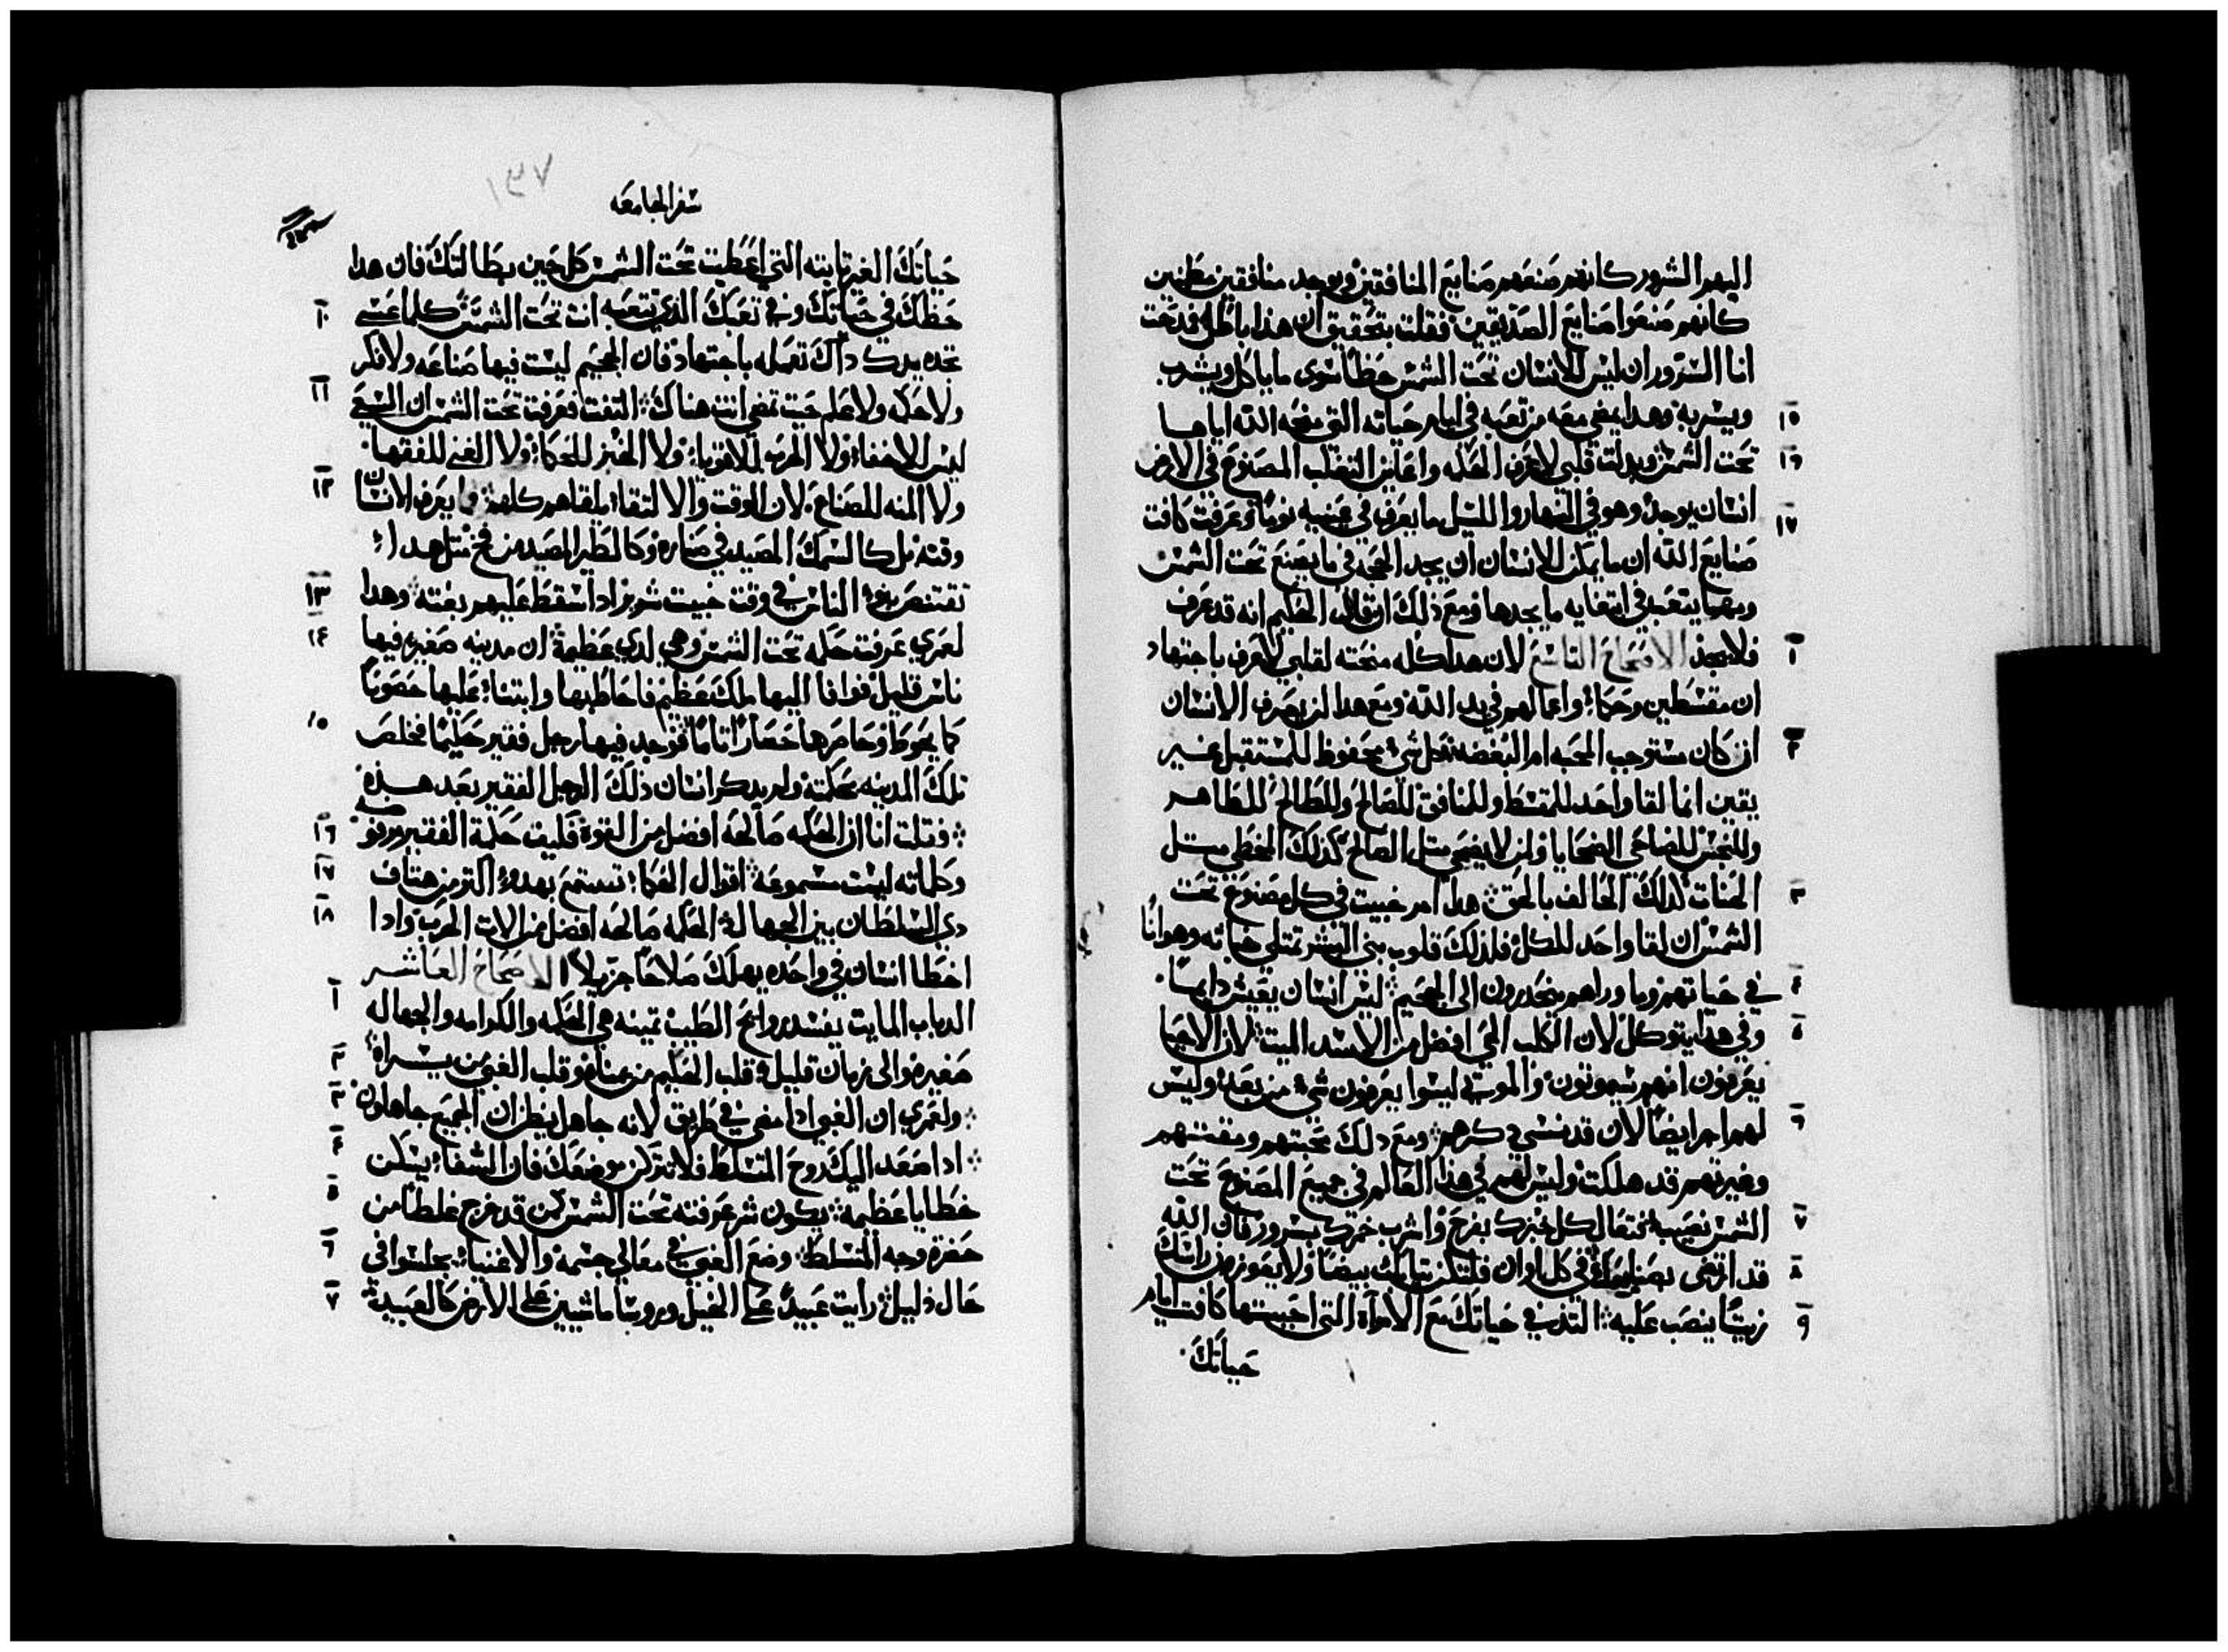 اليهم الشرور كانهم صنعهم صنايع المنافقين ويوجد منافقين مطمنين
كانهم صنعوا صنايع الصديقين فقلت بتحقيق ان هذا باطل فمدحت
انا السرور ان ليس للانسان تحت الشمس حظاً سوى ما ياكل ويشرب
١٥ ويسر به وهدا يمضي معه من تعبه في ايام حياته التي منحه الله اياها
١٦ تحت الشمس وبدلت قلبي لاعرف الحكمه واعاين التقلب المصنوع في الارض
١٧ انسان يوجد وهو في النهار والليل ما يعرف في عينيه نوماً وعرفت كافت
صنايع الله ان ما يمكن الانسان ان يجد الحجه في ما يصنع تحت الشمس
ومهما يتعب في ابتغايه ما يجدها ومع ذلك ان قال الحكيم انه قد عرف
١ فلا يجد الاصحاح التاسع لان هدا كله منحته لقلبي لاعرف باجتهاد
ان مقسطين وحكما واعمالهم في يد الله ومع هدا لن يعرف الانسان
٢ ان كان مستوجب المحبه ام البغضه بل كل شي محفوظ للمستقبل غير
يقين انما لقا واحد للمقسط وللمنافق للصالح وللطالح للطاهر
وللنجس للضاحي الضحايا ولمن لا يضحي متل الصالح كذلك المخطي متل
٣ الحنات كذلك الحالف بالحق هدا امر خبيت في كل مصنوع تحت
الشمس ان لقا واحد للكل فلذلك قلوب بني البشر تمتلي خباته وهوانًا
٤ في حياتهم وما وراهم ينحدرون الى الجحيم ليس انسان يعيش دايماً
٥ وفي هدا يتوكل لان الكلب الحي افضل من الاسد الميت لان الاحيا
يعرفون انهم سيموتون والموتي ليسوا يعرفون شي من بعد وليس
٦ لهم اجر ايضاً لان قد نسي دكرهم ومع دلك محبتهم ومقتتهم
وغيرتهم قد هلكت وليس لهم في هذا العالم في جميع المصنوع تحت
٧ الشمس نصيب فتعال كل خبزك بفرح واشرب خمرك بسرور فان الله
٨ قد ارتضى بصنايعك في كل اوان فلتكن تيابك بيضا ولا يعوز من راسك
٩ زيتًا ينصب عليه التذ في حياتك مع الامراة التي احببتها كافت ايام
حياتك
١٣٧
سفر الجامعه
حياتك الغير تابته التي اعطيت تحت الشمس كل حين بطالتك فان هدا
١٠ حظك في حياتك وفي تعبك الذي تتعبه انت تحت الشمس كلما عسى
تجده يدك داك تعمله باجتهاد فان الجحيم ليست فيها صناعه ولا فكر
١١ ولا حكمه ولا علم حيت تمضي انت هناك التفت فعرفت تحت الشمس ان السعي
ليس للاخفا ولا الحرب للاقويا ولا الخبز للحكما ولا الغنى للفقها
١٢ ولا المنه للصناع لان الوقت والالتقا يلقاهم كلهم ما يعرف الانسان
وقته بل كالسمك المصيد في صناره وكالطير المصيد من فخ متل هدا
١٣ تقتنص بنو الناس في وقت خبيت شرير ادا سقط عليهم بغته وهدا
١٤ لعمري عرفت حكمه تحت الشمس وهي لدي عظيمة ان مدينه صغيره فيها
ناس قليل فوافا اليها ملك عظيم فاحاط بها وابتنا عليها حصوناً
١٥ كما يحوط وحاصرها حصارًا تامًا فوجد فيها رجل فقير حكيمًا فخلص
تلك المدينه بحكمته ولم يدكر انسان ذلك الرجل الفقير بعد هذه
١٦ فقلت انا ان الحكمه صالحه افضل من القوة فكيف حكمة الفقير مرفوضه
١٧ وكلماته ليست مسموعه اقوال الحكما تستمع بهدوء اكتر من هتاف
١٨ دي السلطان بين الجهال الحكمه صالحه افضل من الات الحرب وادا
اخطا انسان في واحده يهلك صلاحًا جزيلاً الاصحاح العاشر
١ الدباب المايت يفسد روايح الطيب تمينه هي الحكمه والكرامه والجهاله
٢ صغيره والى زمان قليل قلب الحكيم من يمناه وقلب الغبي من يسراه
٣ ولعمري ان الغبي ادا مضى في طريق لانه جاهل يظن ان الجميع جاهلون
٤ ادا صعد اليك روح المتسلط فلا تترك موضعك فان الشفا يسكن
٥ خطايا عظيمه يكون شر عرفته تحت الشمس كمن قد خرج غلطًا من
٦ حضرة وجه المتسلط وضع الغبي في معالي جسمه والاغنيا يجلسوا في
٧ حال ذليل رأيت عبيدً على الخيل وروسًا ماشيين على الارض كالعبيد